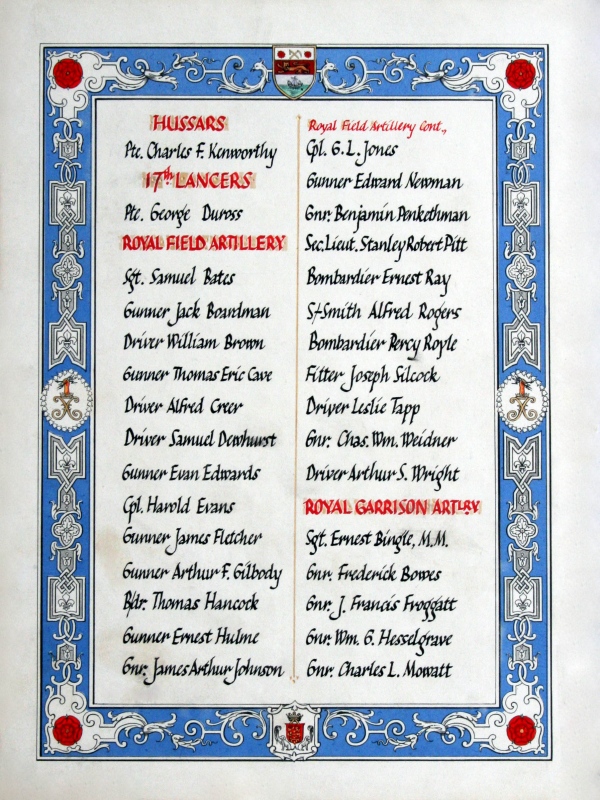 HUSSARS
Pte. Charles F. Kenworthy
17th LANCERS
Pte. George Duross
ROYAL FIELD ARTILLERY
Sgt. Samuel Bates
Gunner Jack Boardman
Driver William Brown
Gunner Thomas Eric Cave
Driver Alfred Creer
Driver Samuel Dewhurst
Gunner Evan Edwards
Cpl. Harold Evans
Gunner James Fletcher
Gunner Arthur F. Gilbody
Bdr. Thomas Hancock
Gunner Ernest Hulme
Gnr. James Arthur Johnson
Royal Field Artillery Cont.,
Cpl. G. L. Jones
Gunner Edward Newman
Gnr. Benjamin Penkethman
Sec. Lieut. Stanley Robert Pitt
Bombardier Ernest Ray
S/Smith Alfred Rogers
Bombardier Percy Royle
Fitter Joseph Silcock
Driver Leslie Tapp
Gnr. Chas. Wm. Weidner
Driver Arthur S. Wright
ROYAL GARRISON ARTLRY
Sgt. Ernest Bingle, M.M.
Gnr. Frederick Bowes
Gnr. J. Francis Froggatt
Gnr. Wm. G. Hesselgrave
Gnr. Charles L. Mowatt